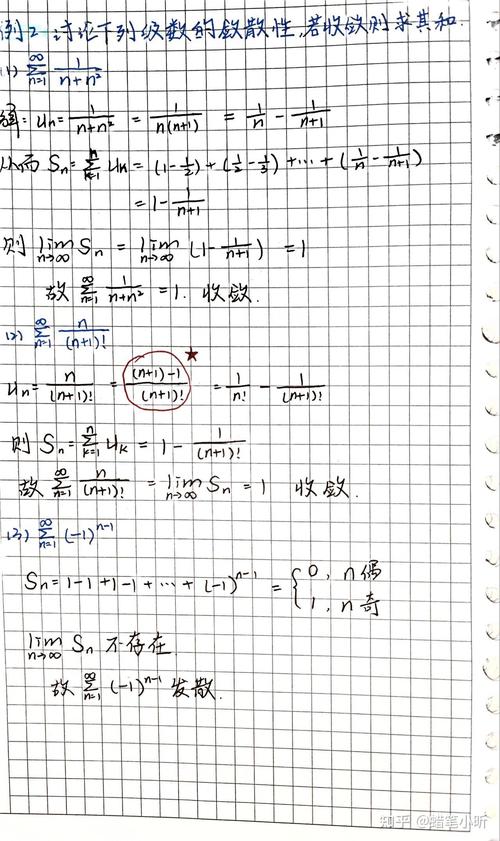 例2 讨论下列级数的敛散性,若收敛则求其和.
(1) ∑_{n=1}^{∞} 1/(n+n²)
解: uₙ = 1/(n+n²) = 1/(n(n+1)) = 1/n - 1/(n+1)
从而 Sₙ = ∑_{k=1}^{n} uₖ = (1-1/2) + (1/2-1/3) + ··· + (1/n - 1/(n+1))
= 1 - 1/(n+1)
则 lim_{n→∞} Sₙ = lim_{n→∞} (1 - 1/(n+1)) = 1
故 ∑_{n=1}^{∞} 1/(n+n²) = 1. 收敛.
(2) ∑_{n=1}^{∞} n/(n+1)!
uₙ = n/(n+1)! = ((n+1)-1)/(n+1)! ★ = 1/n! - 1/(n+1)!
则 Sₙ = ∑_{k=1}^{n} uₖ = 1 - 1/(n+1)!
故 ∑_{n=1}^{∞} n/(n+1)! = lim_{n→∞} Sₙ = 1 收敛.
(3) ∑_{n=1}^{∞} (-1)^{n-1}
Sₙ = 1-1+1-1+···+(-1)^{n-1} = { 0, n偶
1, n奇
lim_{n→∞} Sₙ 不存在
故 ∑_{n=1}^{∞} (-1)^{n-1} 发散.
知乎 @蜡笔小昕